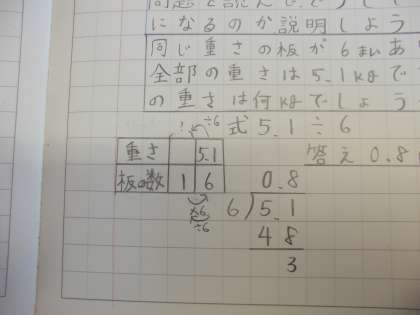 問題を読んで、どうして
になるのか説明しよう
同じ重さの板が6まいあ
全部の重さは5.1kgで
の重さは何kgでしょう
式 5.1÷6
÷6
重さ 5.1
答え 0.8
板の数 1 6
0.8
6)5.1
×6
÷6
48
3